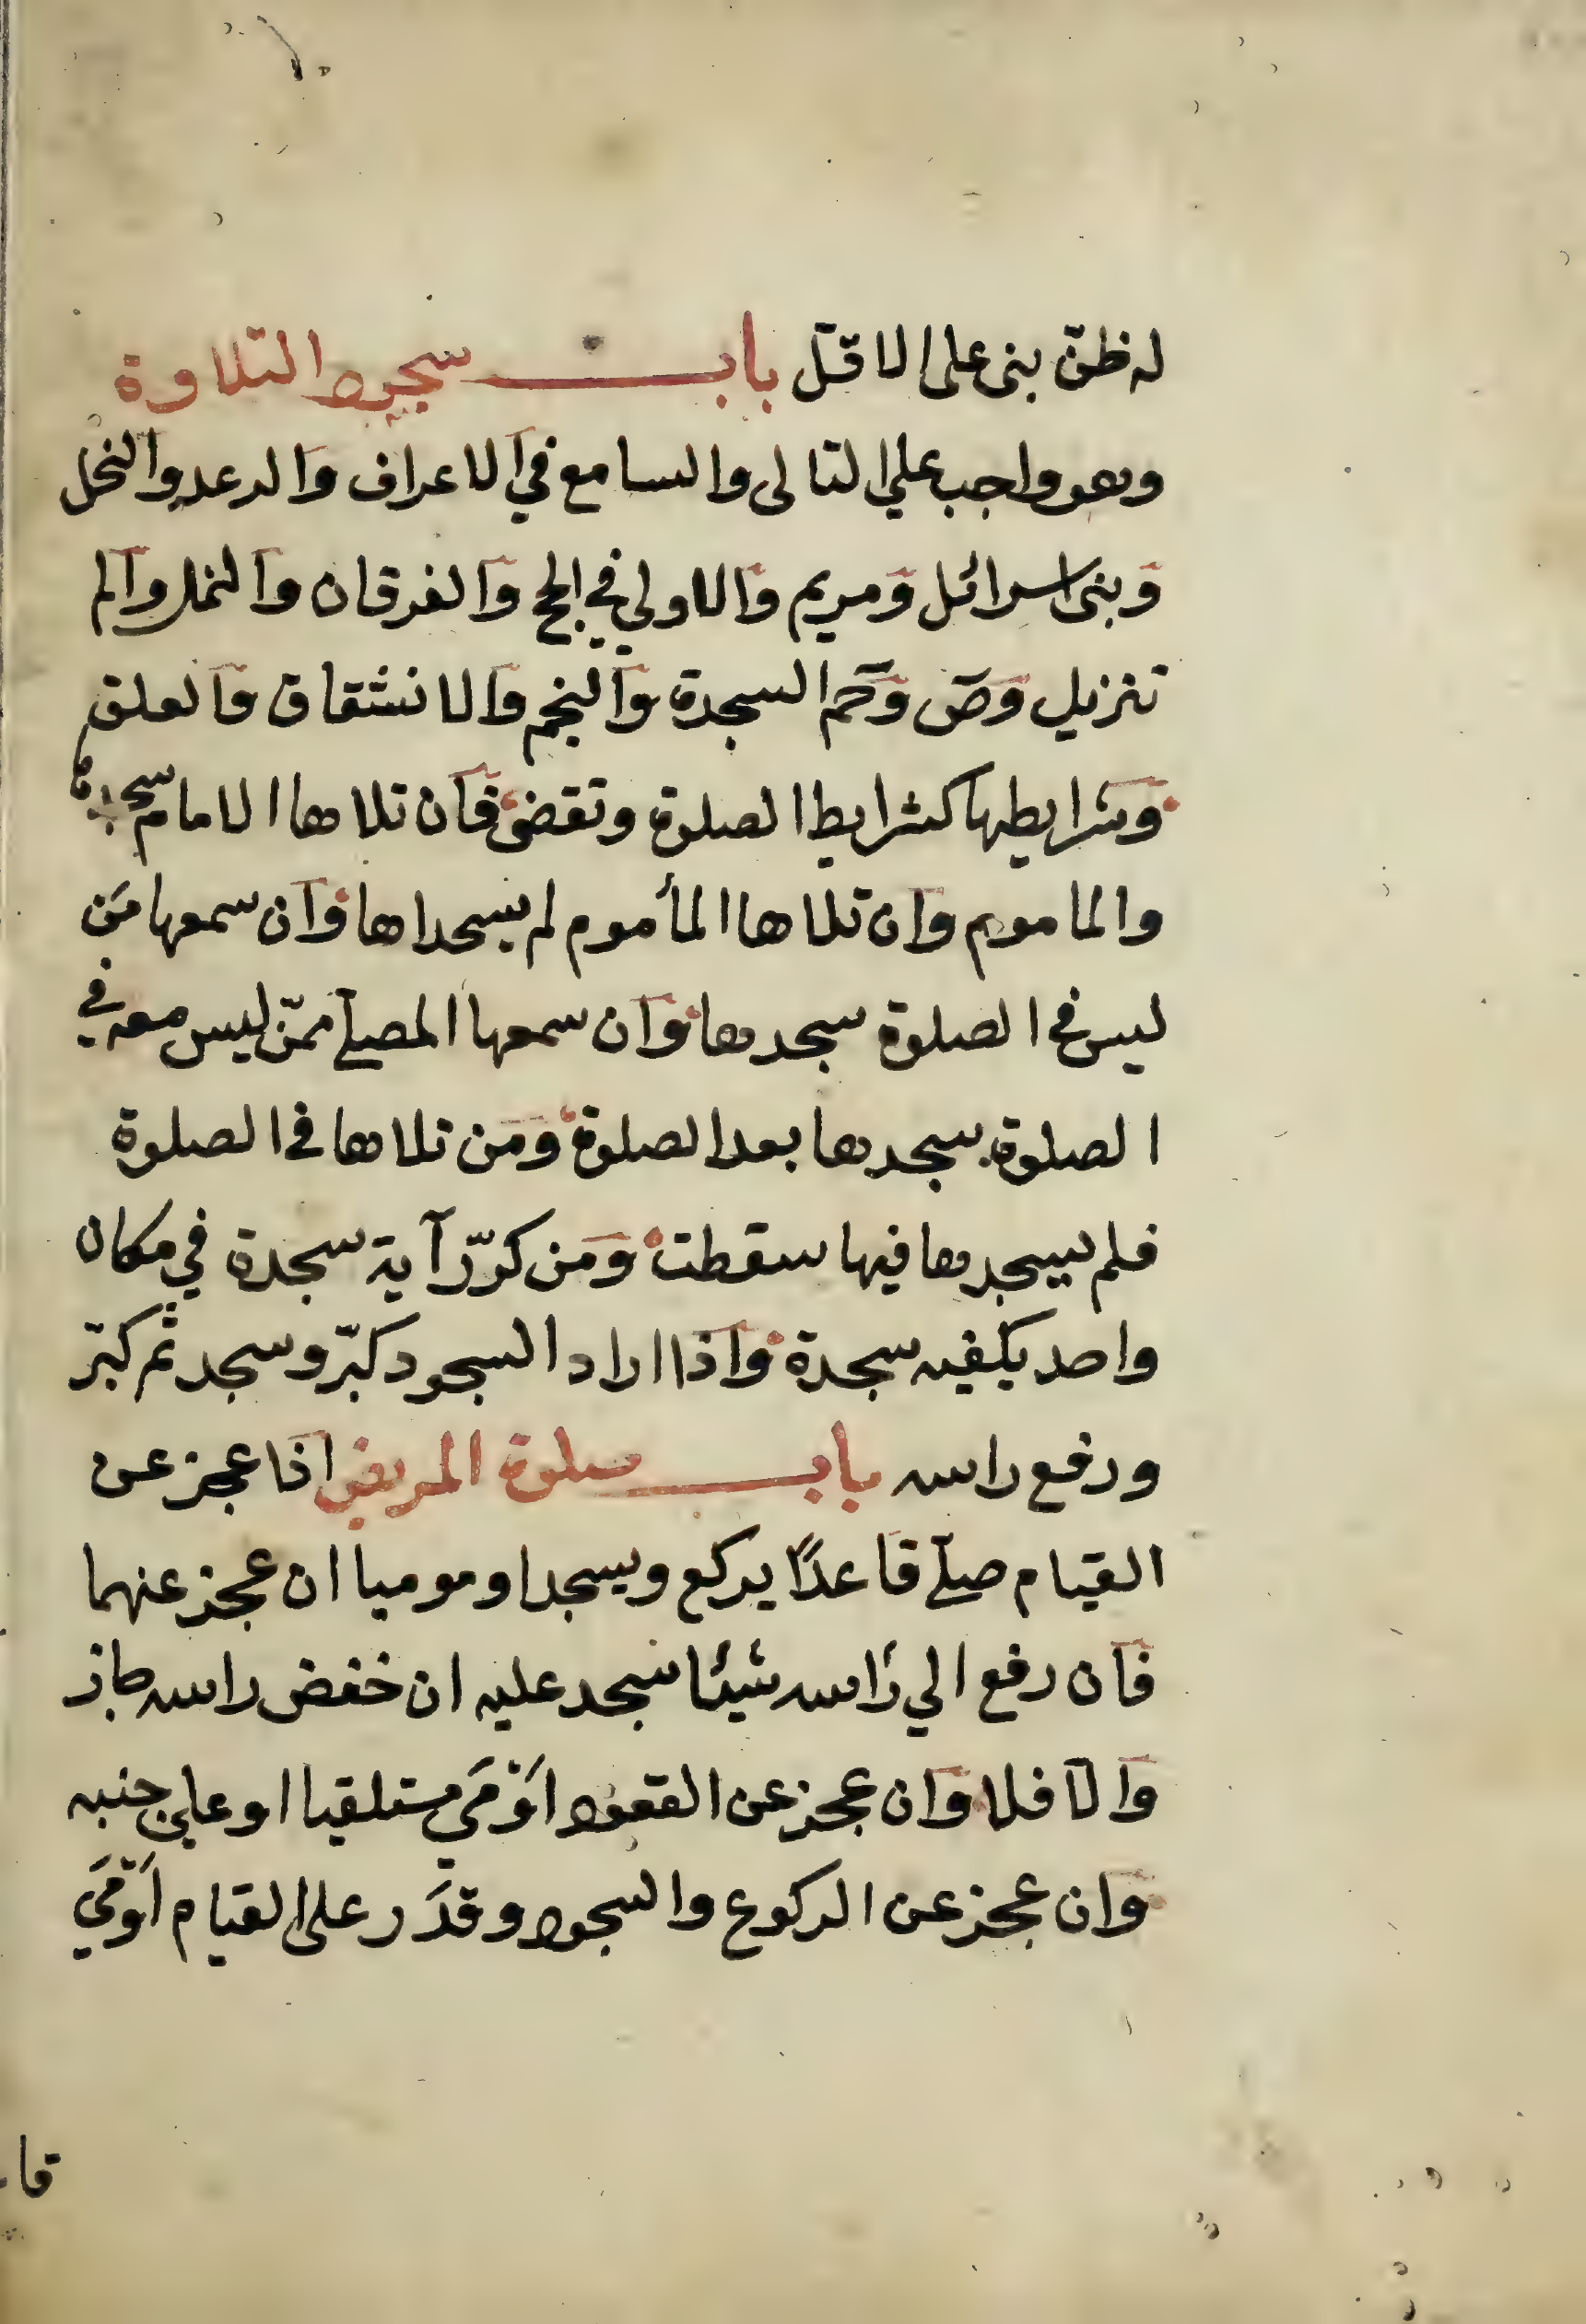 له ظن بنى على الاقل باب سجود التلاوة
وهو واجب على التالى والسامع في الاعراف والرعد والنحل
وبنى اسرائل ومريم والاولي في الحج والفرقان والنمل والم
تنزيل وص وحم السجدة والنجم والانشقاق والعلق
وشرايطها كشرايط الصلوة وتقضى فان تلاها الامام سجدها
والماموم وان تلاها المأموم لم يسجداها وان سمعها من
ليس في الصلوة سجدها وان سمعها المصلي ممّن ليس معه في
الصلوة سجدها بعد الصلوة ومن تلاها في الصلوة
فلم يسجدها فيها سقطت ومن كرّر آية سجدة في مكان
واحد يكفيه سجدة واذا اراد السجود كبّر وسجد ثم كبّر
ورفع راسه باب صلوة المريض اذا عجز عن
القيام صلي قاعدًا يركع ويسجد او موميا ان عجز عنهما
فان رفع الي رأسه شيئا سجد عليه ان خفض راسه جاز
والا فلا وان عجز عن القعود اوْمَي مستلقيا او علي جنبه
وان عجز عن الركوع والسجود وقدَر على القيام اَوْمَي
قا